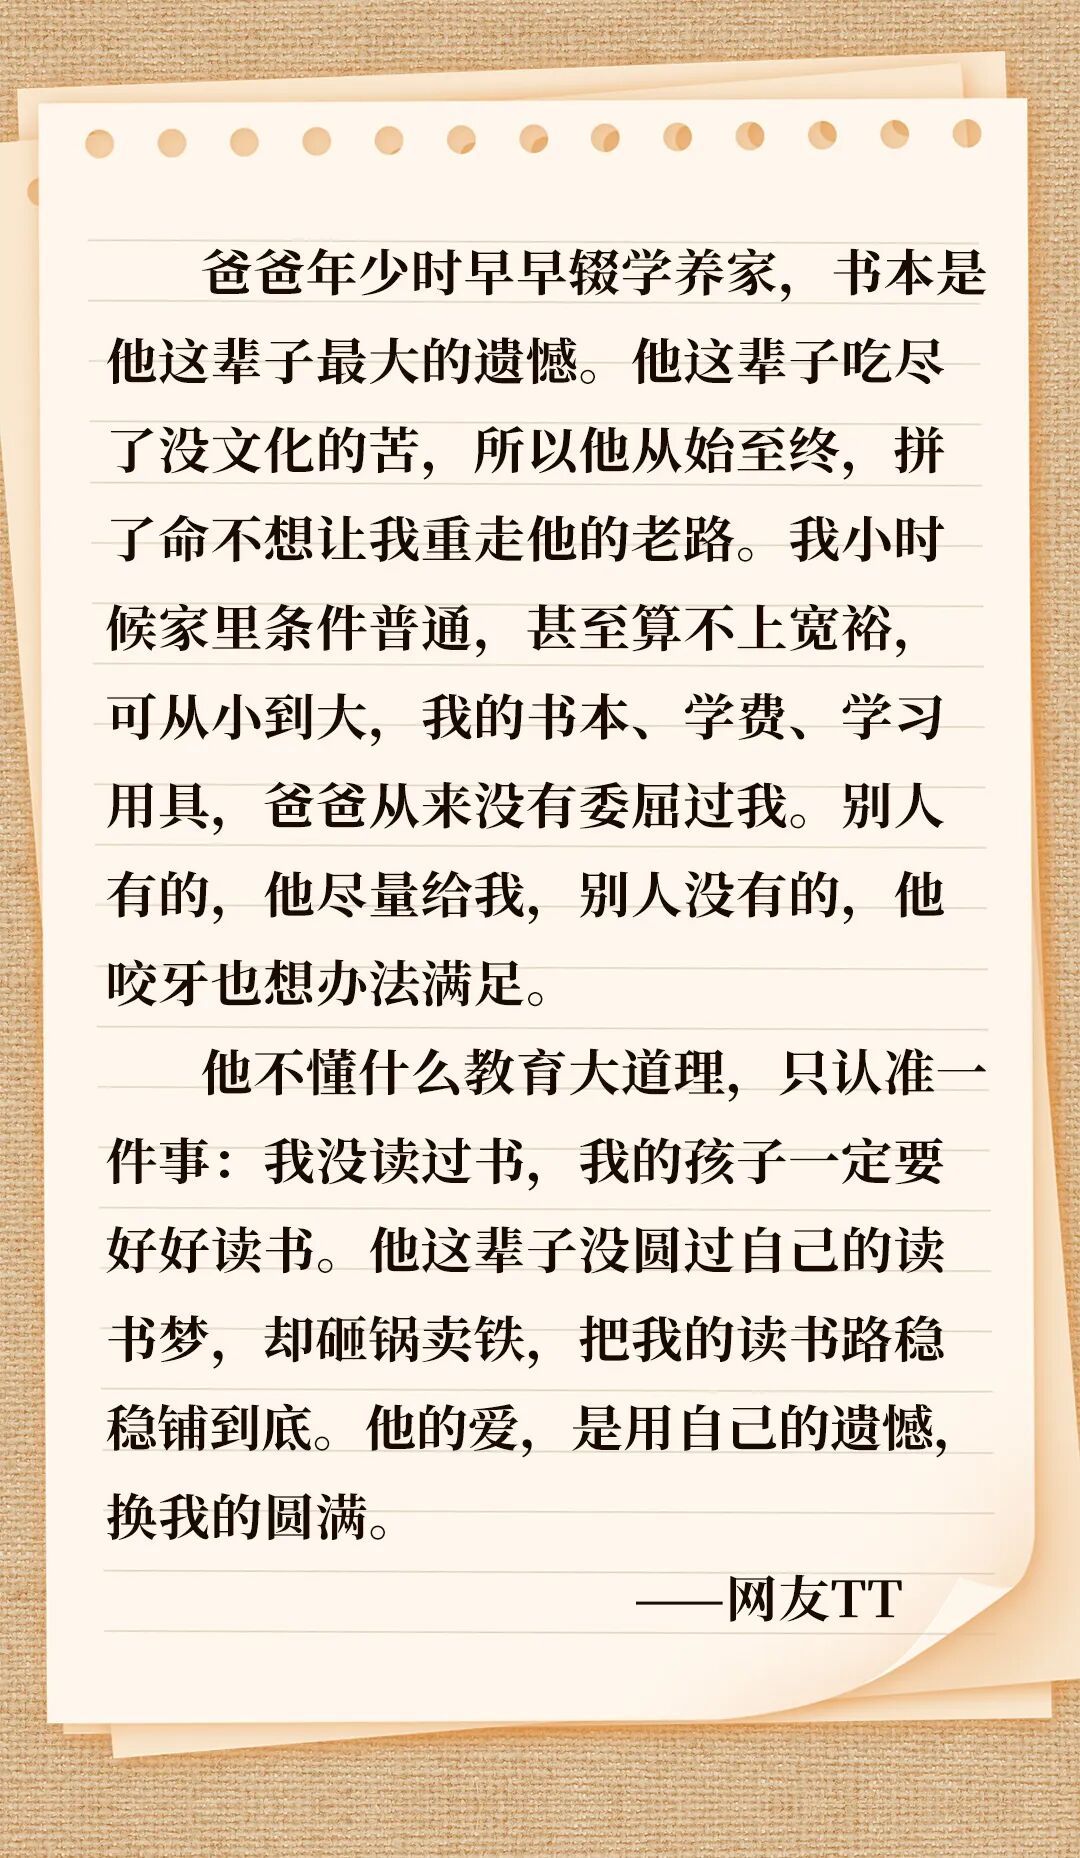 爸爸年少时早早辍学养家，书本是
他这辈子最大的遗憾。他这辈子吃尽
了没文化的苦，所以他从始至终，拼
了命不想让我重走他的老路。我小时
候家里条件普通，甚至算不上宽裕，
可从小到大，我的书本、学费、学习
用具，爸爸从来没有委屈过我。别人
有的，他尽量给我，别人没有的，他
咬牙也想办法满足。
他不懂什么教育大道理，只认准一
件事：我没读过书，我的孩子一定要
好好读书。他这辈子没圆过自己的读
书梦，却砸锅卖铁，把我的读书路稳
稳铺到底。他的爱，是用自己的遗憾，
换我的圆满。
——网友TT